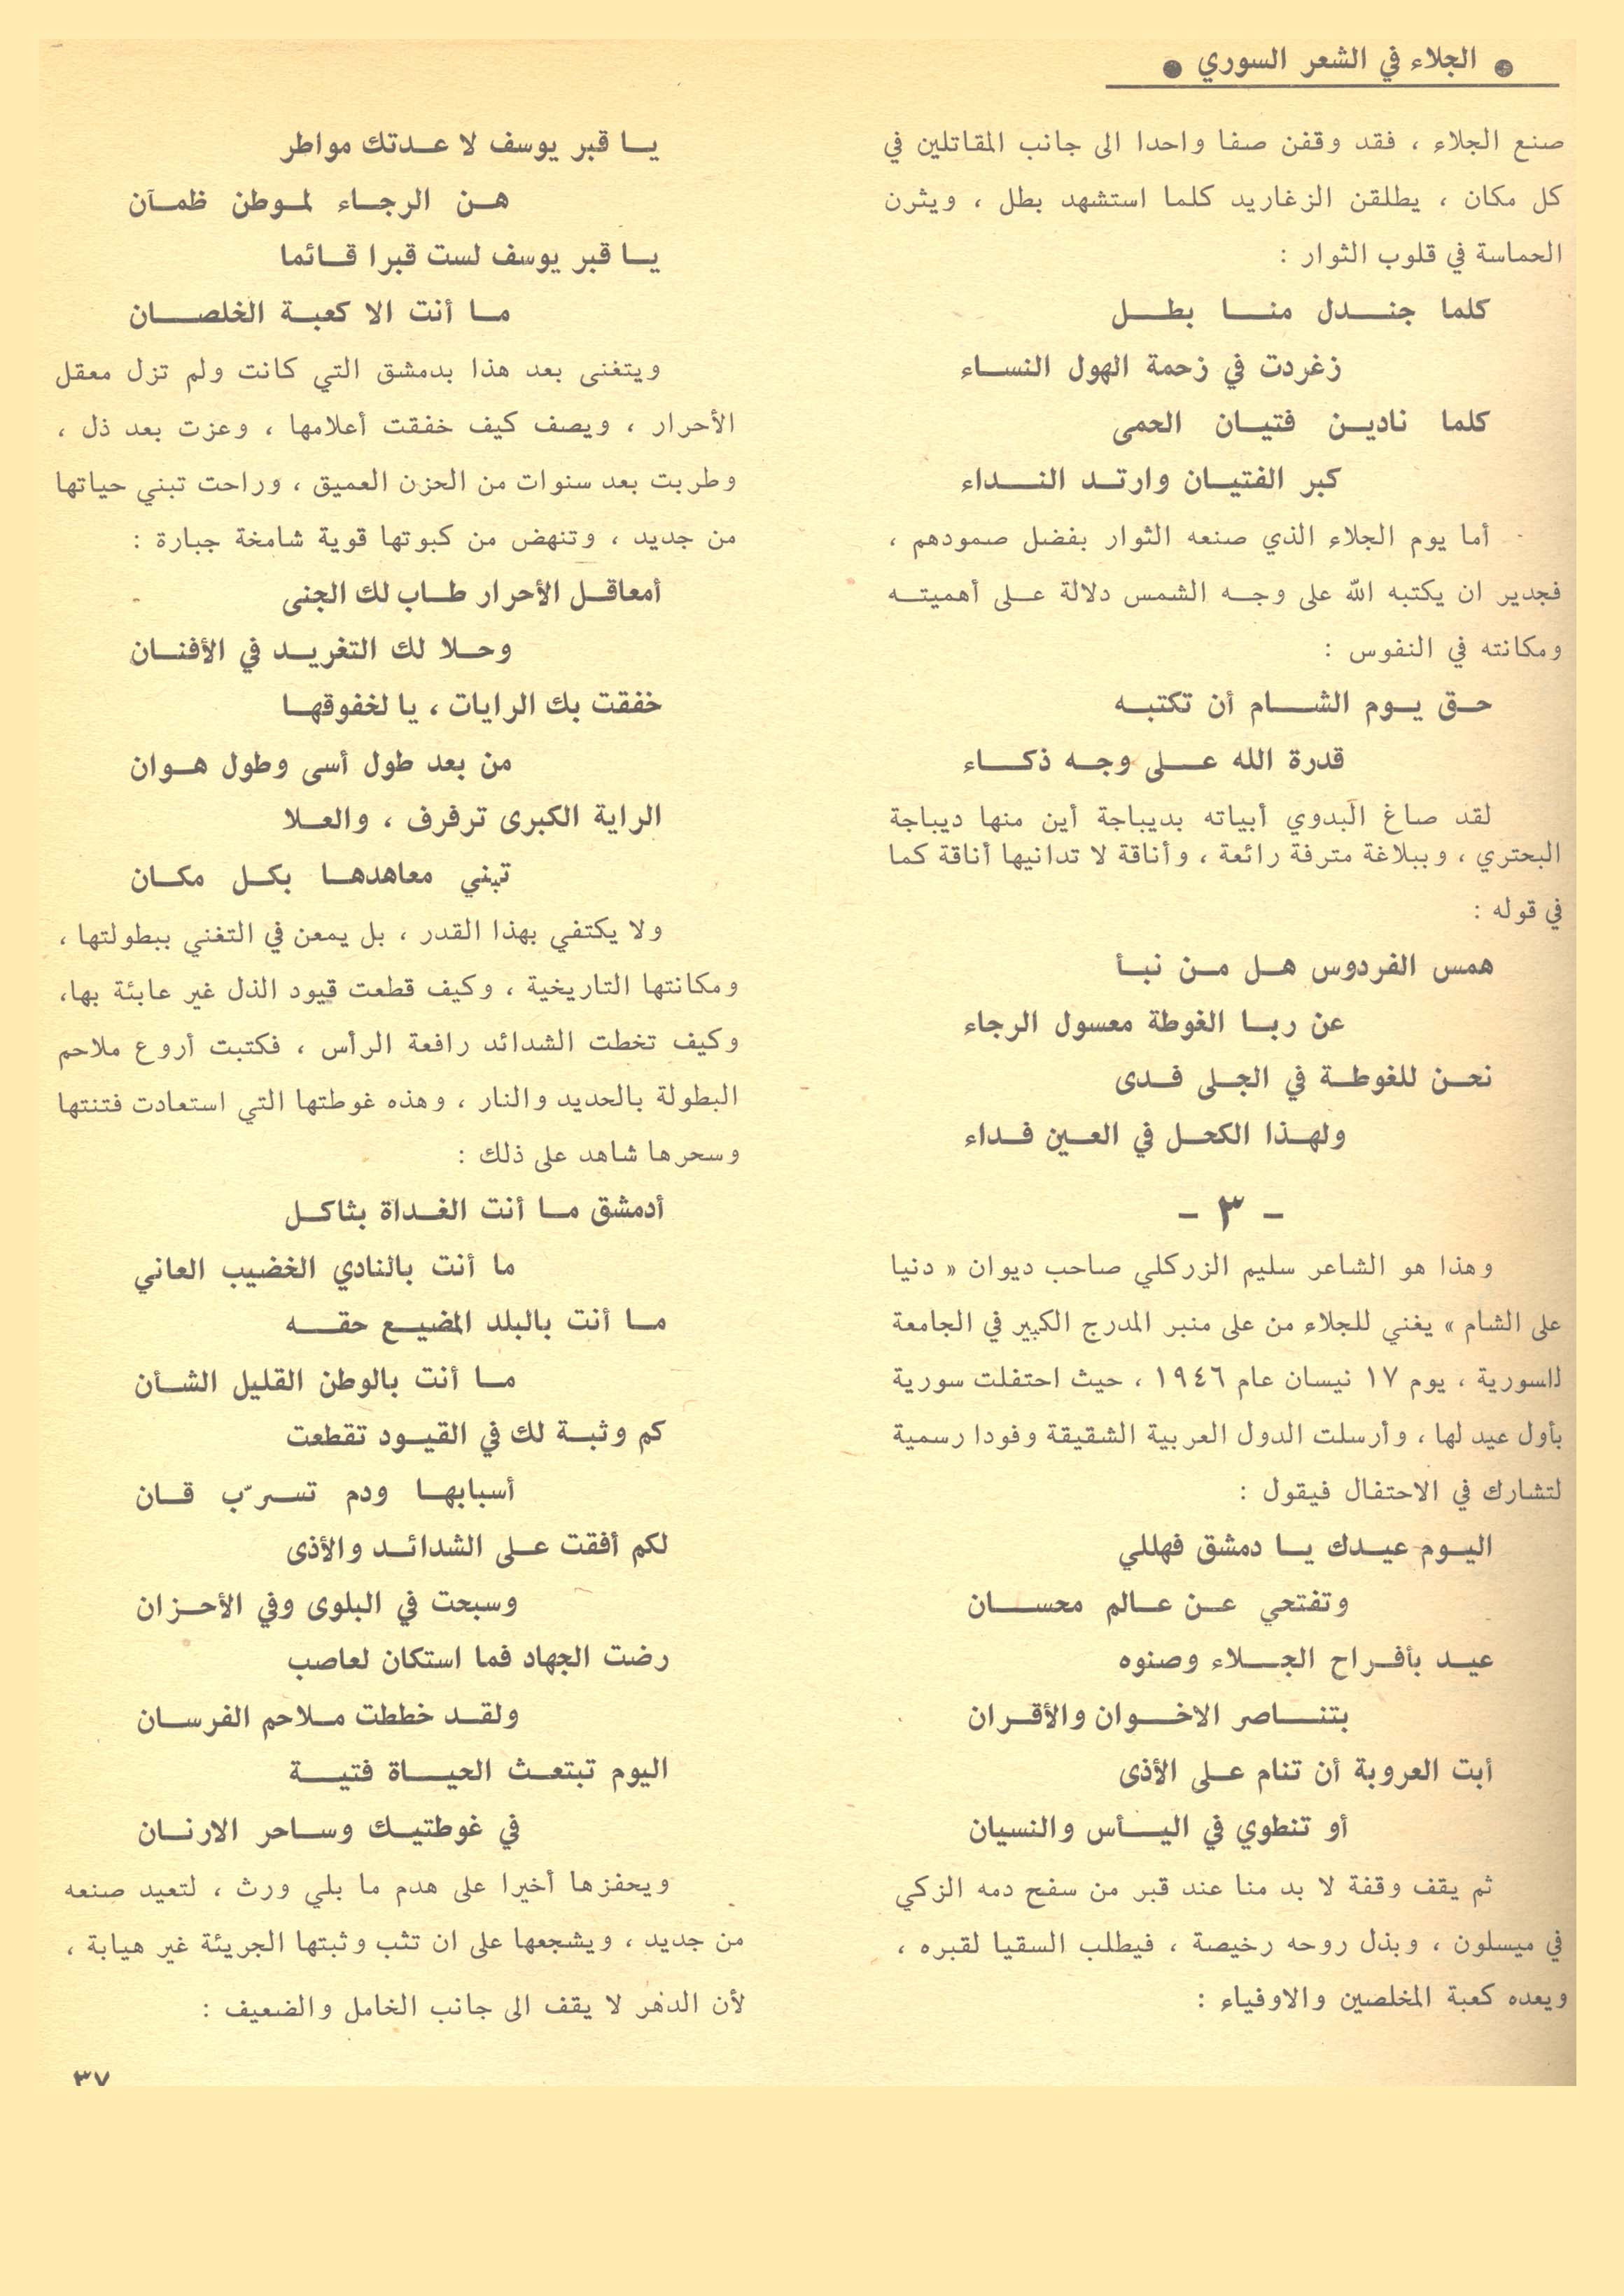 ● الجلاء في الشعر السوري ●
صنع الجلاء ، فقد وقفن صفا واحدا الى جانب المقاتلين في
كل مكان ، يطلقن الزغاريد كلما استشهد بطل ، ويثرن
الحماسة في قلوب الثوار :
كلما جندل منا بطل
زغردت في زحمة الهول النساء
كلما نادين فتيان الحمى
كبر الفتيان وارتد النداء
أما يوم الجلاء الذي صنعه الثوار بفضل صمودهم ،
فجدير ان يكتبه الله على وجه الشمس دلالة على أهميته
ومكانته في النفوس :
حق يوم الشام أن تكتبه
قدرة الله على وجه ذكاء
لقد صاغ البدوي أبياته بديباجة أين منها ديباجة
البحتري ، وببلاغة مترفة رائعة ، وأناقة لا تدانيها أناقة كما
في قوله :
همس الفردوس هل من نبأ
عن ربا الغوطة معسول الرجاء
نحن للغوطة في الجلى فدى
ولهذا الكحل في العين فداء
- ٣ -
وهذا هو الشاعر سليم الزركلي صاحب ديوان « دنيا
على الشام » يغني للجلاء من على منبر المدرج الكبير في الجامعة
السورية ، يوم ١٧ نيسان عام ١٩٤٦ ، حيث احتفلت سورية
بأول عيد لها ، وأرسلت الدول العربية الشقيقة وفودا رسمية
لتشارك في الاحتفال فيقول :
اليوم عيدك يا دمشق فهللي
وتفتحي عن عالم محسان
عيد بأفراح الجلاء وصنوه
بتناصر الاخوان والأقران
أبت العروبة أن تنام على الأذى
أو تنطوي في اليأس والنسيان
ثم يقف وقفة لا بد منا عند قبر من سفح دمه الزكي
في ميسلون ، وبذل روحه رخيصة ، فيطلب السقيا لقبره ،
ويعده كعبة المخلصين والاوفياء :
يا قبر يوسف لا عدتك مواطر
هن الرجاء لموطن ظمآن
يا قبر يوسف لست قبرا قائما
ما أنت الا كعبة الخلصان
ويتغنى بعد هذا بدمشق التي كانت ولم تزل معقل
الأحرار ، ويصف كيف خفقت أعلامها ، وعزت بعد ذل ،
وطربت بعد سنوات من الحزن العميق ، وراحت تبني حياتها
من جديد ، وتنهض من كبوتها قوية شامخة جبارة :
أمعاقل الأحرار طاب لك الجنى
وحلا لك التغريد في الأفنان
خفقت بك الرايات ، يا لخفوقها
من بعد طول أسى وطول هوان
الراية الكبرى ترفرف ، والعلا
تبني معاهدها بكل مكان
ولا يكتفي بهذا القدر ، بل يمعن في التغني ببطولتها ،
ومكانتها التاريخية ، وكيف قطعت قيود الذل غير عابئة بها،
وكيف تخطت الشدائد رافعة الرأس ، فكتبت أروع ملاحم
البطولة بالحديد والنار ، وهذه غوطتها التي استعادت فتنتها
وسحرها شاهد على ذلك :
أدمشق ما أنت الغداة بثاكل
ما أنت بالنادي الخضيب العاني
ما أنت بالبلد المضيع حقه
ما أنت بالوطن القليل الشأن
كم وثبة لك في القيود تقطعت
أسبابها ودم تسرّب قان
لكم أفقت على الشدائد والأذى
وسبحت في البلوى وفي الأحزان
رضت الجهاد فما استكان لعاصب
ولقد خططت ملاحم الفرسان
اليوم تبتعث الحياة فتية
في غوطتيك وساحر الارنان
ويحفزها أخيرا على هدم ما بلي ورث ، لتعيد صنعه
من جديد ، ويشجعها على ان تثب وثبتها الجريئة غير هيابة ،
لأن الدهر لا يقف الى جانب الخامل والضعيف :
٣٧